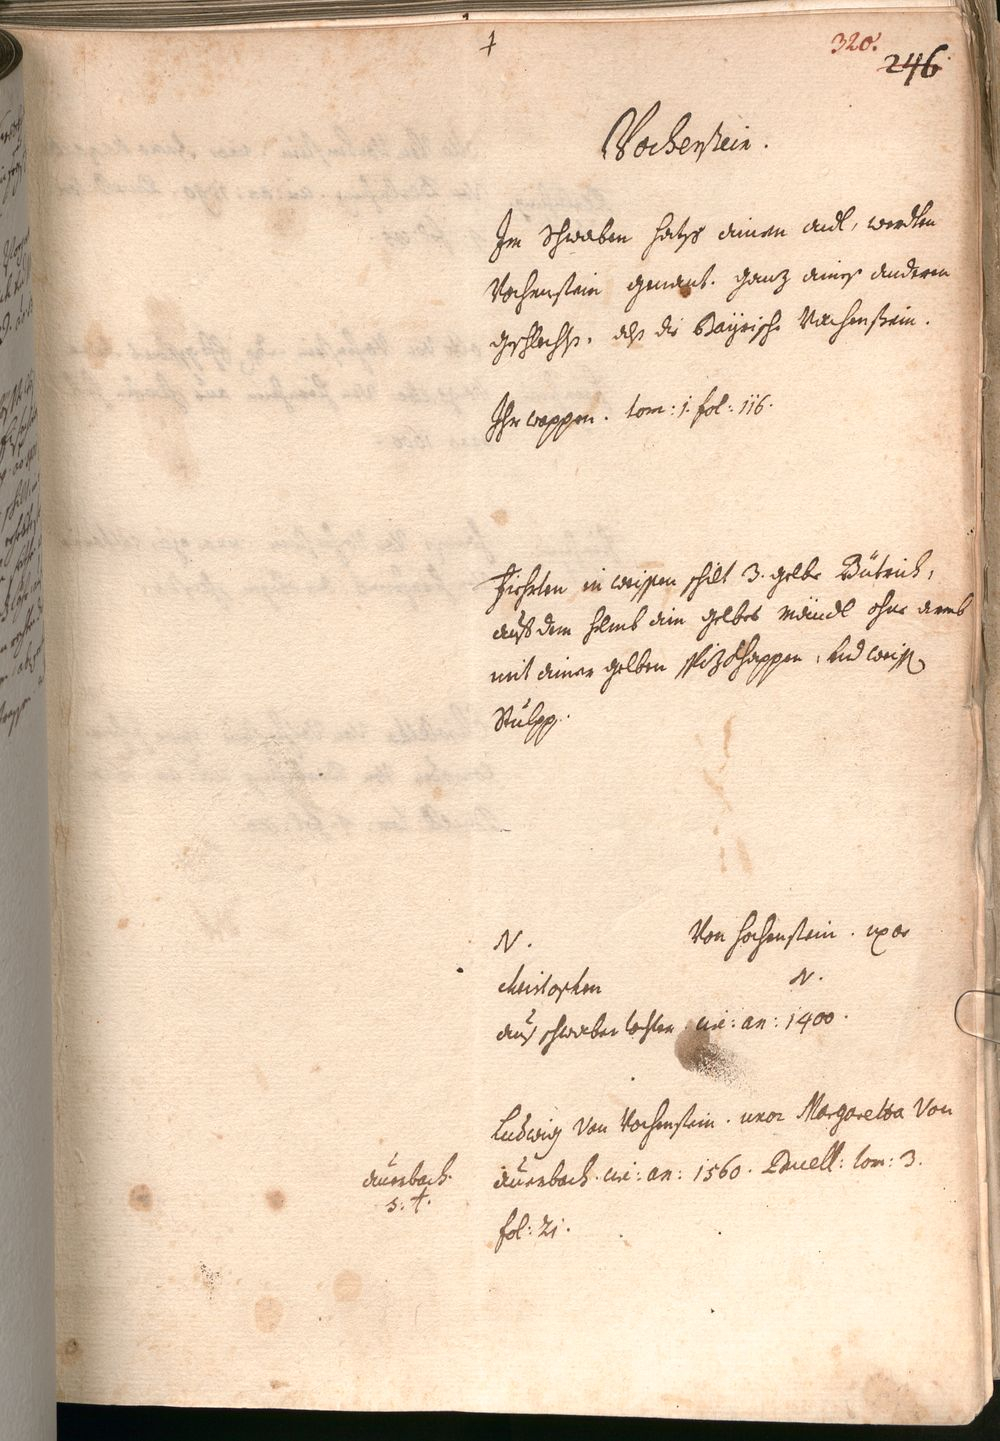 †
320.
246
Vochenstein.
Im Schwaben hats ainen adl, werdten
Vochenstein genant. ganz aines anderen
geschlechts, als die Bayrische Vachenstein.
Ihr wappen. tom: 1. fol: 116.
Fiehrten in weissen schilt 3. gelbe Bütrich,
auß dem helmb ain gelbes Mändl ohne armb
mit ainer gelben spiz Khappen, und weiss
Stulpp.
N. Von hochenstein. uxor
christophen N.
aus schwaben tochter. cir: an: 1400.
Ludwig Von Vochenstein. uxor Margaretta Von
Aurnbach. cir: an: 1560. Duell: tom: 3.
fol: 21.
Aurnbach.
s: †.